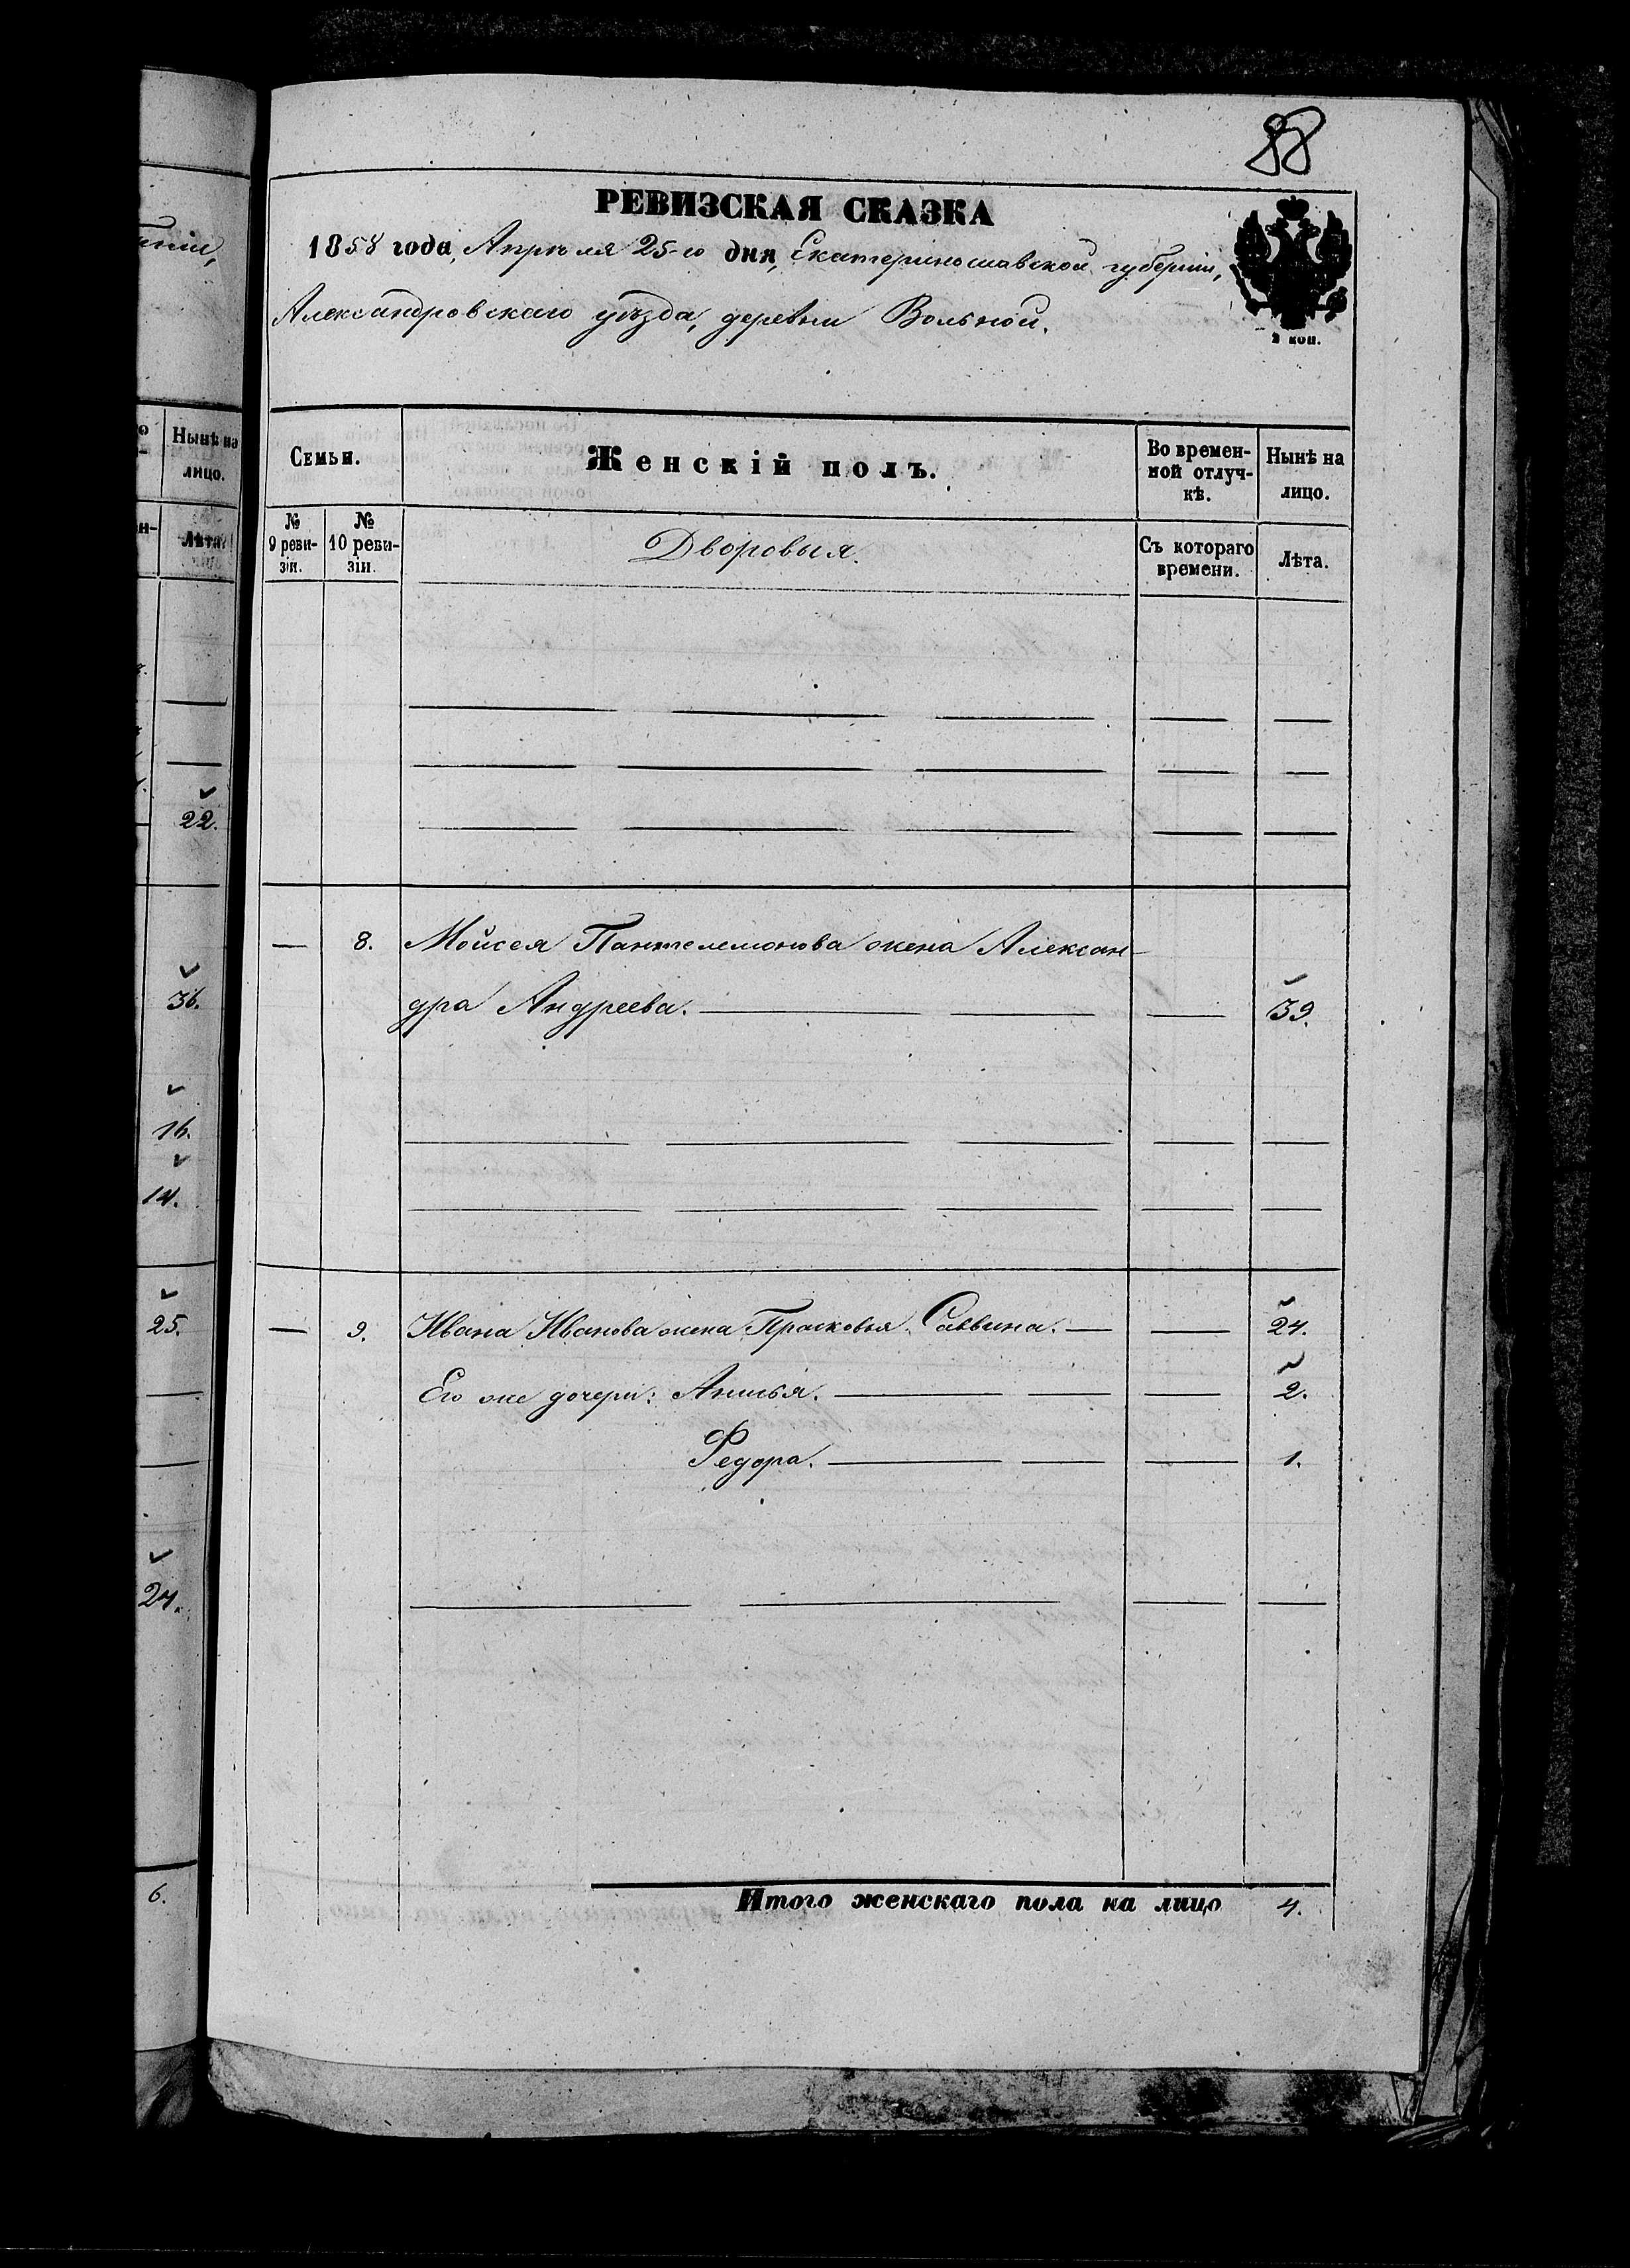 88
РЕВИЗСКАЯ СКАЗКА
1858 года, Апрѣля 25-го дня, Екатеринославской губерніи,
Александровскаго уѣзда, деревни Вольной.
2 коп.
Семьи.
Женскій полъ.
Во времен-
ной отлуч-
кѣ.
Нынѣ на
лицо.
№
9 реви-
зіи.
№
10 реви-
зіи.
Дворовыя.
Съ котораго
времени.
Лѣта.
— 8. Мойсея Пантелемонова жена Алексан-
дра Андреева. — — 39.
— 9. Ивана Иванова жена Прасковья Саввина. — — 24.
Его же дочери: Анисья. — — 2.
Федора. — — 1.
Итого женскаго пола на лицо 4.
Нынѣ на
лицо.
Лѣта.
22.
36.
16.
14.
25.
24.
6.